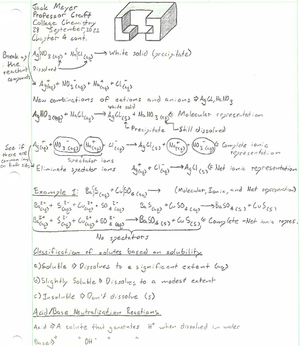 Jack Mayer
Professor Graff
College Chemistry
28 September 2022
Chapter 4 cont.
Break up the reactant compounds
AgNO₃(aq) + NaCl(aq) → White solid (precipitate)
Dissolved
→ Ag⁺(aq) + NO₃⁻(aq) + Na⁺(aq) + Cl⁻(aq)
New combinations of cations and anions → AgCl, NaNO₃
white solid
AgNO₃(aq) + NaCl(aq) → AgCl(s) + NaNO₃(aq) Molecular representation
Precipitate Still dissolved
See if there are common ions on both sides
Ag⁺(aq) + NO₃⁻(aq) + Na⁺(aq) + Cl⁻(aq) → AgCl(s) + Na⁺(aq) + NO₃⁻(aq) Complete ionic representation
Spectator ions
Eliminate spectator ions Ag⁺(aq) + Cl⁻(aq) → AgCl(s) Net ionic representation
Example 1: BaS(aq) + CuSO₄(aq) → (Molecular, Ionic, and Net representation)
Ba²⁺(aq) + S²⁻(aq) + Cu²⁺(aq) + SO₄²⁻(aq) → BaS(aq) + CuSO₄(aq) → BaSO₄(s) + CuS(s)
Ba²⁺(aq) + S²⁻(aq) + Cu²⁺(aq) + SO₄²⁻(aq) → BaSO₄(s) + CuS(s) Complete + Net ionic repres.
No spectators
Classification of solutes based on solubility
a) Soluble → Dissolves to a significant extent (aq)
b) Slightly Soluble → Dissolves to a modest extent
c) Insoluble → Don't dissolve (s)
Acid/Base Neutralization Reactions
Acid → A solute that generates H⁺ when dissolved in water
Base → " " OH⁻ " "